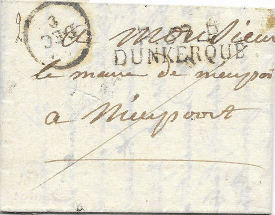 3
Monsieur
DUNKERQUE
le maire de nieuport
a Nieuport